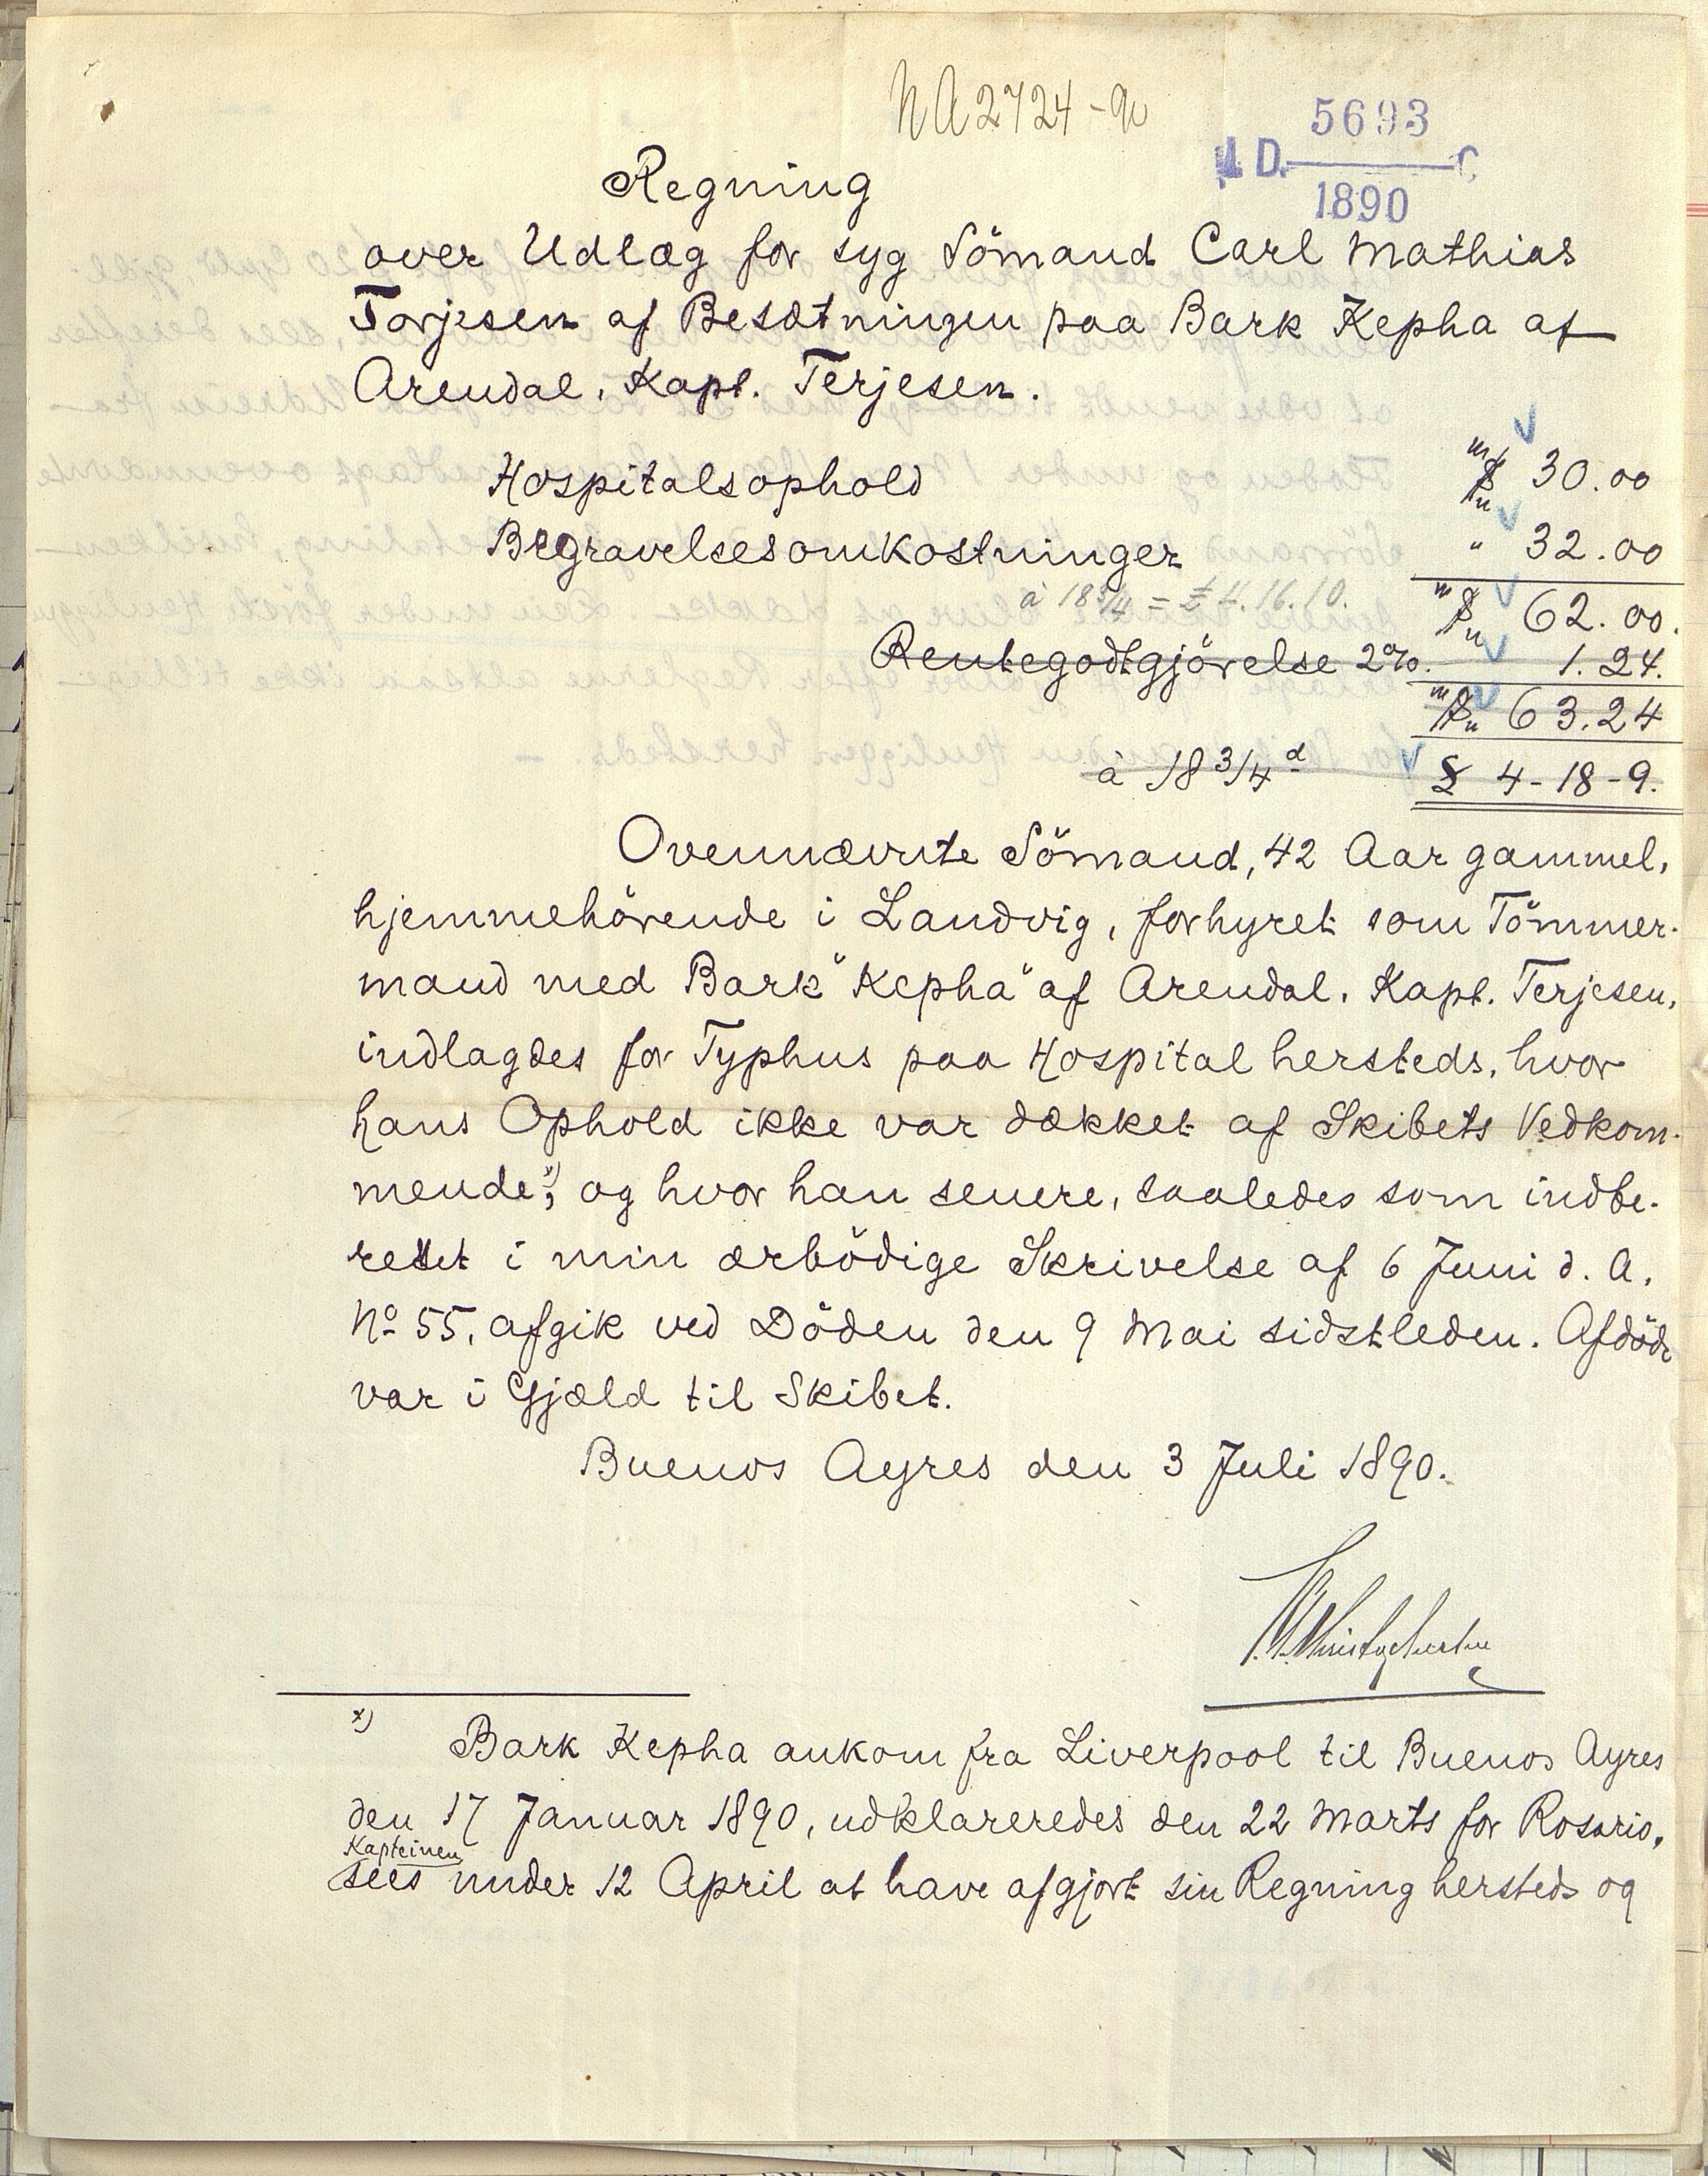 NA2724-90
5693
1D. C
1890
Regning
over Udlæg for syg Sömand Carl Mathias
Torjesen af Besætningen paa Bark Kepha af
Arendal, Kapt. Terjesen.
Hospitalsophold m/n $ 30.00
Begravelsesomkostninger " 32.00
à 18 3/4 = £ 4.16.10. m/n $ 62.00.
Rentegodtgjörelse 2%. 1.24.
m/n $ 63.24
à 18 3/4 d £ 4-18-9.
Ovennævnte Sömand, 42 Aar gammel,
hjemmehörende i Landvig, forhyret som Tömmer-
mand med Bark "Kepha" af Arendal, Kapt. Terjesen,
indlagdes for Typhus paa Hospital hersteds, hvor
hans Ophold ikke var dækket af Skibets Vedkom-
mende x), og hvor han senere, saaledes som indbe-
rettet i min ærbödige Skrivelse af 6 Juni d. A,
No 55, afgik ved Döden den 9 Mai sidstleden. Afdöde
var i Gjæld til Skibet.
Buenos Ayres den 3 Juli 1890.
x) Bark Kepha ankom fra Liverpool til Buenos Ayres
den 17 Januar 1890, udklareredes den 22 Marts for Rosario,
Kapteinen
sees under 12 April at have afgjort sin Regning hersteds og